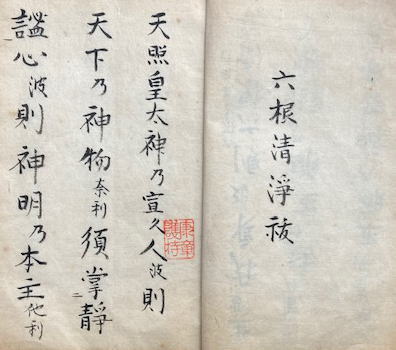 六根清淨祓
天照皇太神乃宣久人波則
天下乃神物奈利須掌ニ靜
謐心波則神明乃本主他利